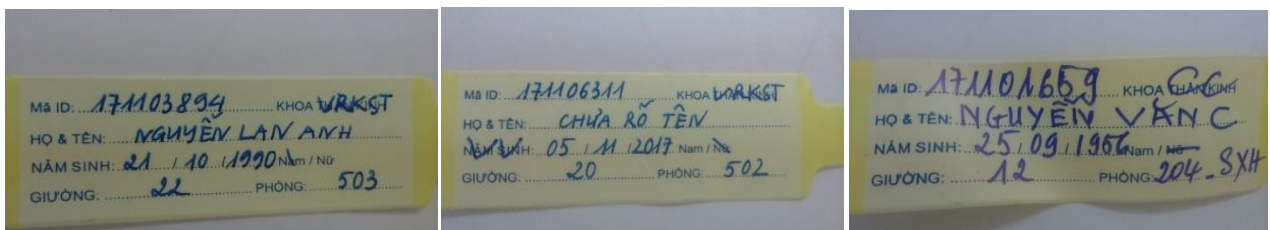 Mã ID: 171103894 KHOA VRKST
HỌ & TÊN: NGUYỄN LAN ANH
NĂM SINH: 21 / 10 / 1990 Nam / Nữ
GIƯỜNG: 22 PHÒNG: 503
Mã ID: 171106311 KHOA VRKST
HỌ & TÊN: CHƯA RÕ TÊN
NĂM SINH: 05 / 11 / 2017 Nam / Nữ
GIƯỜNG: 20 PHÒNG: 502
Mã ID: 171101659 KHOA THẦN KINH CC
HỌ & TÊN: NGUYỄN VĂN C
NĂM SINH: 25 / 09 / 1956 Nam / Nữ
GIƯỜNG: 12 PHÒNG: 204 - SXH